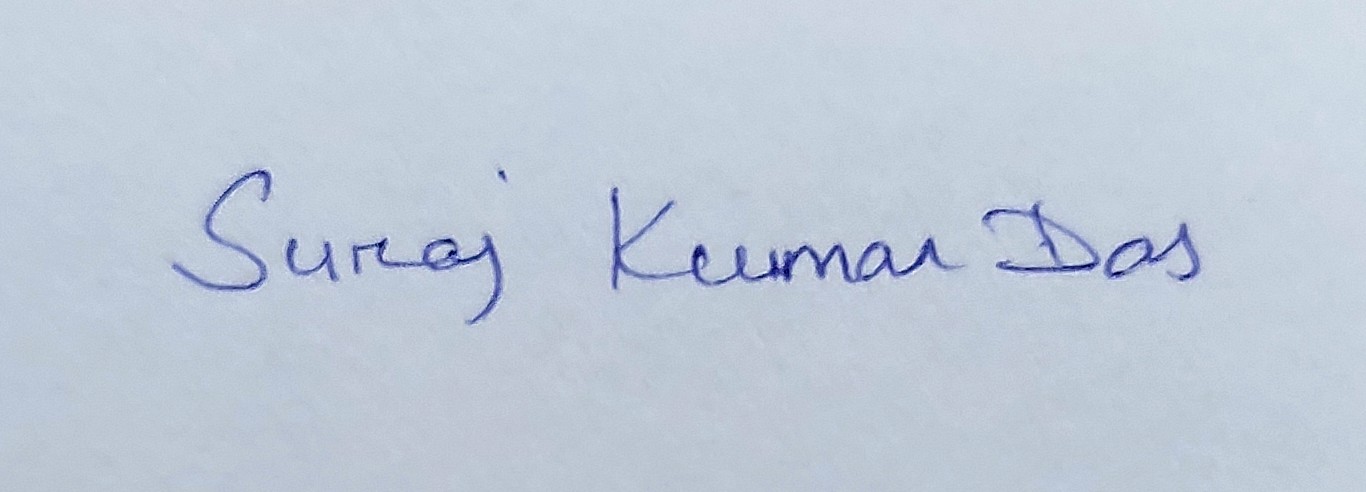 Suraj Kumar Das